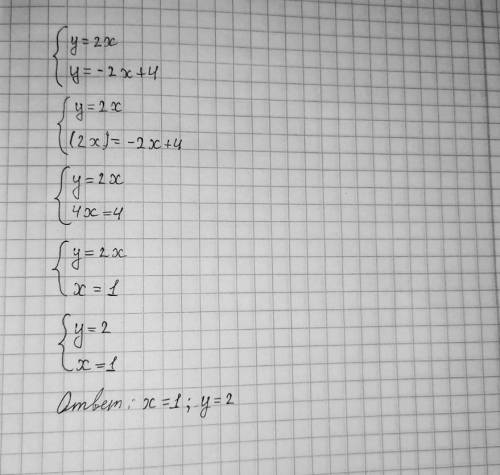 y=2x
y=-2x+4
y=2x
(2x)=-2x+4
y=2x
4x=4
y=2x
x=1
y=2
x=1
Ответ: x=1; y=2